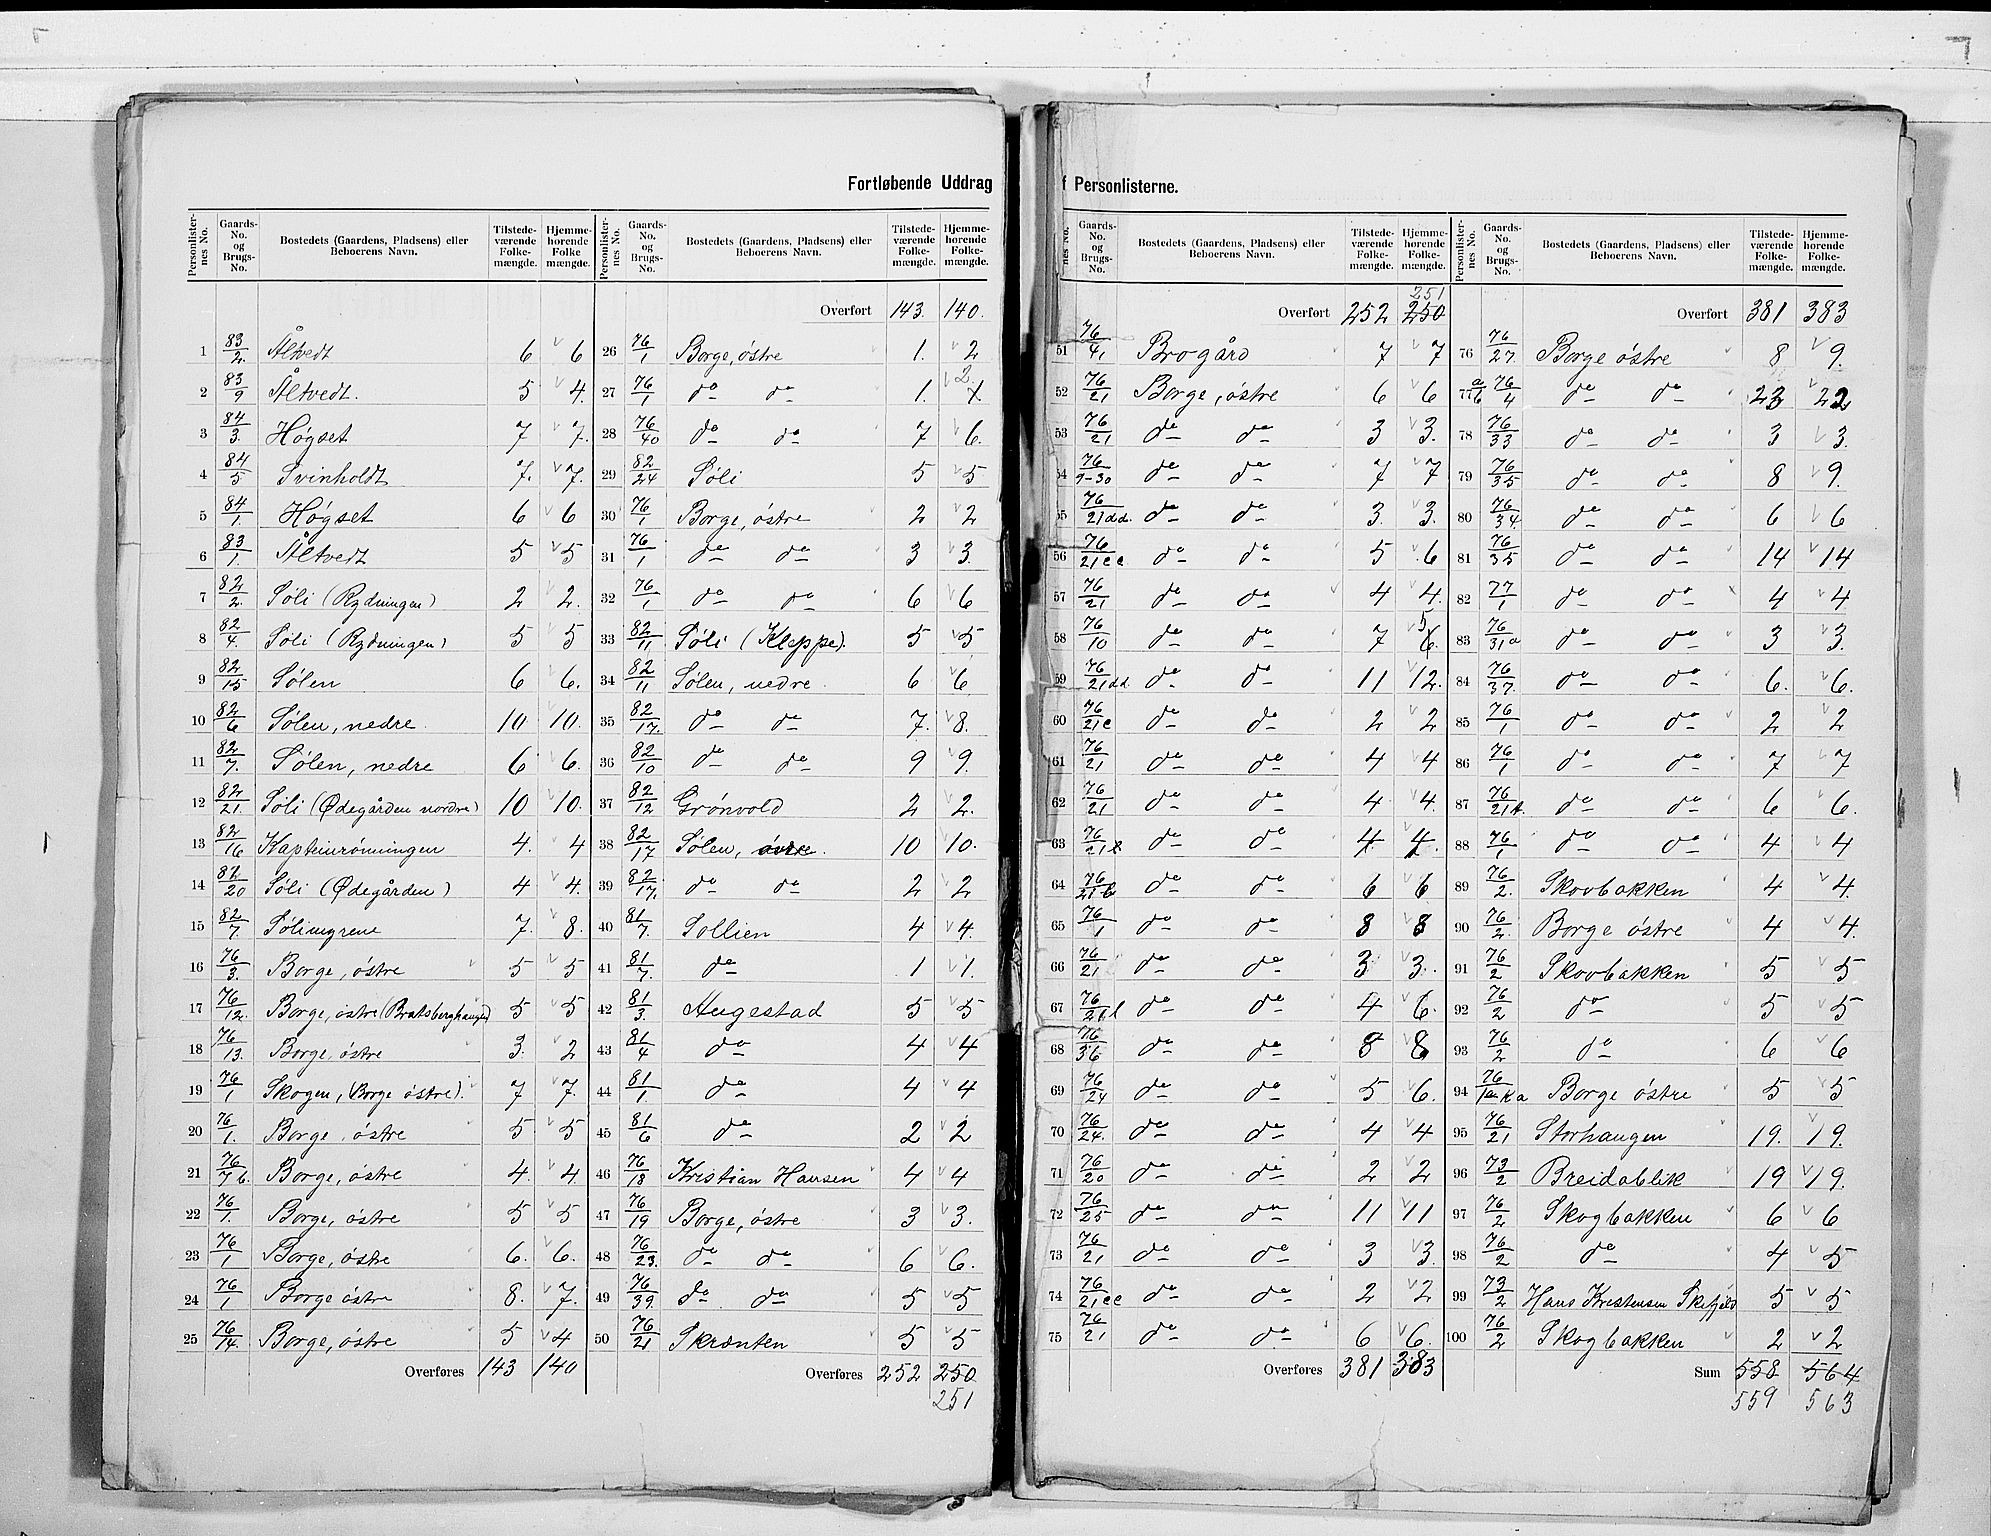 Fortløbende Uddrag af Personlisterne.
Personlisternes No. | Gaards-No. og Brugs-No. | Bostedets (Gaardens, Pladsens) eller Beboerens Navn. | Tilstedeværende Folkemængde. | Hjemmehørende Folkemængde.
1 83/2 Åltvedt 6 6
2 83/9 Åltvedt. 5 4.
3 84/3. Høgset 7 7.
4 84/5 Svinholdt 7. 7.
5 84/1. Høgset 6 6
6 83/1. Åltvedt 5 5
7 82/2. Søli (Rydningen) 2 2.
8 82/4. Søli (Rydningen) 5 5
9 82/15 Sølen 6 6.
10 82/6 Sølen, nedre. 10 10.
11 82/7. Sølen, nedre 6 6.
12 82/21. Søli (Ødegården nordre) 10 10.
13 82/16 Kapteinrønningen 4. 4
14 82/20 Søli (Ødegården) 4 4.
15 82/7. Sølimgrene 7. 8.
16 76/3. Borge, østre 5 5
17 76/12. Borge, østre (Bratsberghaugen) 5 5
18 76/13. Borge, østre 3. 2
19 76/1 Skogen, (Borge østre). 7 7.
20 76/1. Borge, østre 5 5
21 76/7 b. Borge, østre 4. 4.
22 76/1. Borge, østre 5 5
23 76/1 Borge, østre 6. 6.
24 76/1 Borge østre 8. 7.
25 76/14. Borge, østre 5 4
Overføres 143 140
Overført 143. 140.
26 76/1 Borge, østre 1. 2
27 76/1 do do 1. 2.
28 76/40 do do 7 6.
29 82/24 Søli 5 5
30 76/1 Borge, østre 2 2
31 76/1 do do 3 3.
32 76/1 do do 6 6
33 82/11 Søli (Kleppe). 5 5
34 82/11 Sølen, nedre. 6 6
35 82/17. do do 7. 8.
36 82/10 do do 9 9.
37 82/12 Grønvold 2 2.
38 82/17 Sølen, øvre. 10 10.
39 82/17. do do 2 2
40 81/7. Sollien 4 4.
41 81/7. do 1 1.
42 81/3. Augestad 5 5
43 81/4 do 4 4
44 81/1. do 4 4
45 81/6 do 2 2
46 76/18 Kristian Hansen 4 4
47 76/19 Borge, østre 3 3.
48 76/23. do do 6 6.
49 76/39. do do 5 5
50 76/21 Skrænten 5 5
Overføres 252 250
251
Overført 252 250 251
51 76/41 Brogård 7 7
52 76/21 Borge, østre 6 6
53 76/21 do do 3 3.
54 76/9-30 do do 7 7
55 76/21dd. do do 3. 3.
56 76/21cc do do 5 6
57 76/21 do do 4 4.
58 76/10 do do 7 6. 5
59 76/21dd do do 11 12.
60 76/21c do do 2 2
61 76/21 do do 4 4
62 76/21 do do 4. 4.
63 76/21 do do 4. 4.
64 76/21 b do do 6 6
65 76/1 do do 8 8
66 76/21 do do 3 3.
67 76/21l do do 4 6.
68 76/36 do do 8 8
69 76/24 do do 5 6.
70 76/24. do do 4 4
71 76/20 do do 2 2
72 76/25 do do 11 11
73 76/21 do do 3 3.
74 76/21cc do do 2 2
75 76/21 do do 6 6.
Overføres 381 383
Overført 381 383
76 76/27. Borge østre 8 9.
77 a/b 76/4 do do 23 22
78 76/33 do do 3 3.
79 76/35 do do 8 9.
80 76/34. do do 6 6
81 76/35 do do 14 14
82 77/1 do do 4 4
83 76/31a do do 3 3.
84 76/37. do do 6. 6.
85 76/1 do do 2 2
86 76/1 do do 7 7
87 76/21 do do 6 6.
88 76/1 do do 4 4
89 76/2. Skovbakken 4 4.
90 76/2. Borge østre 4 4.
91 76/2 Skovbakken 5 5
92 76/2 do 5 5
93 76/2 do 6 6
94 76/ Borge østre 5 5
95 76/21 Storhaugen 19. 19.
96 73/2 Breidablik 19 19.
97 76/2 Skogbakken 6 6
98 76/2 do 4 5
99 73/2 Hans Kristensen Skifjeld 5 5
100 76/2 Skogbakken 2 2
Sum 558 564
559 563